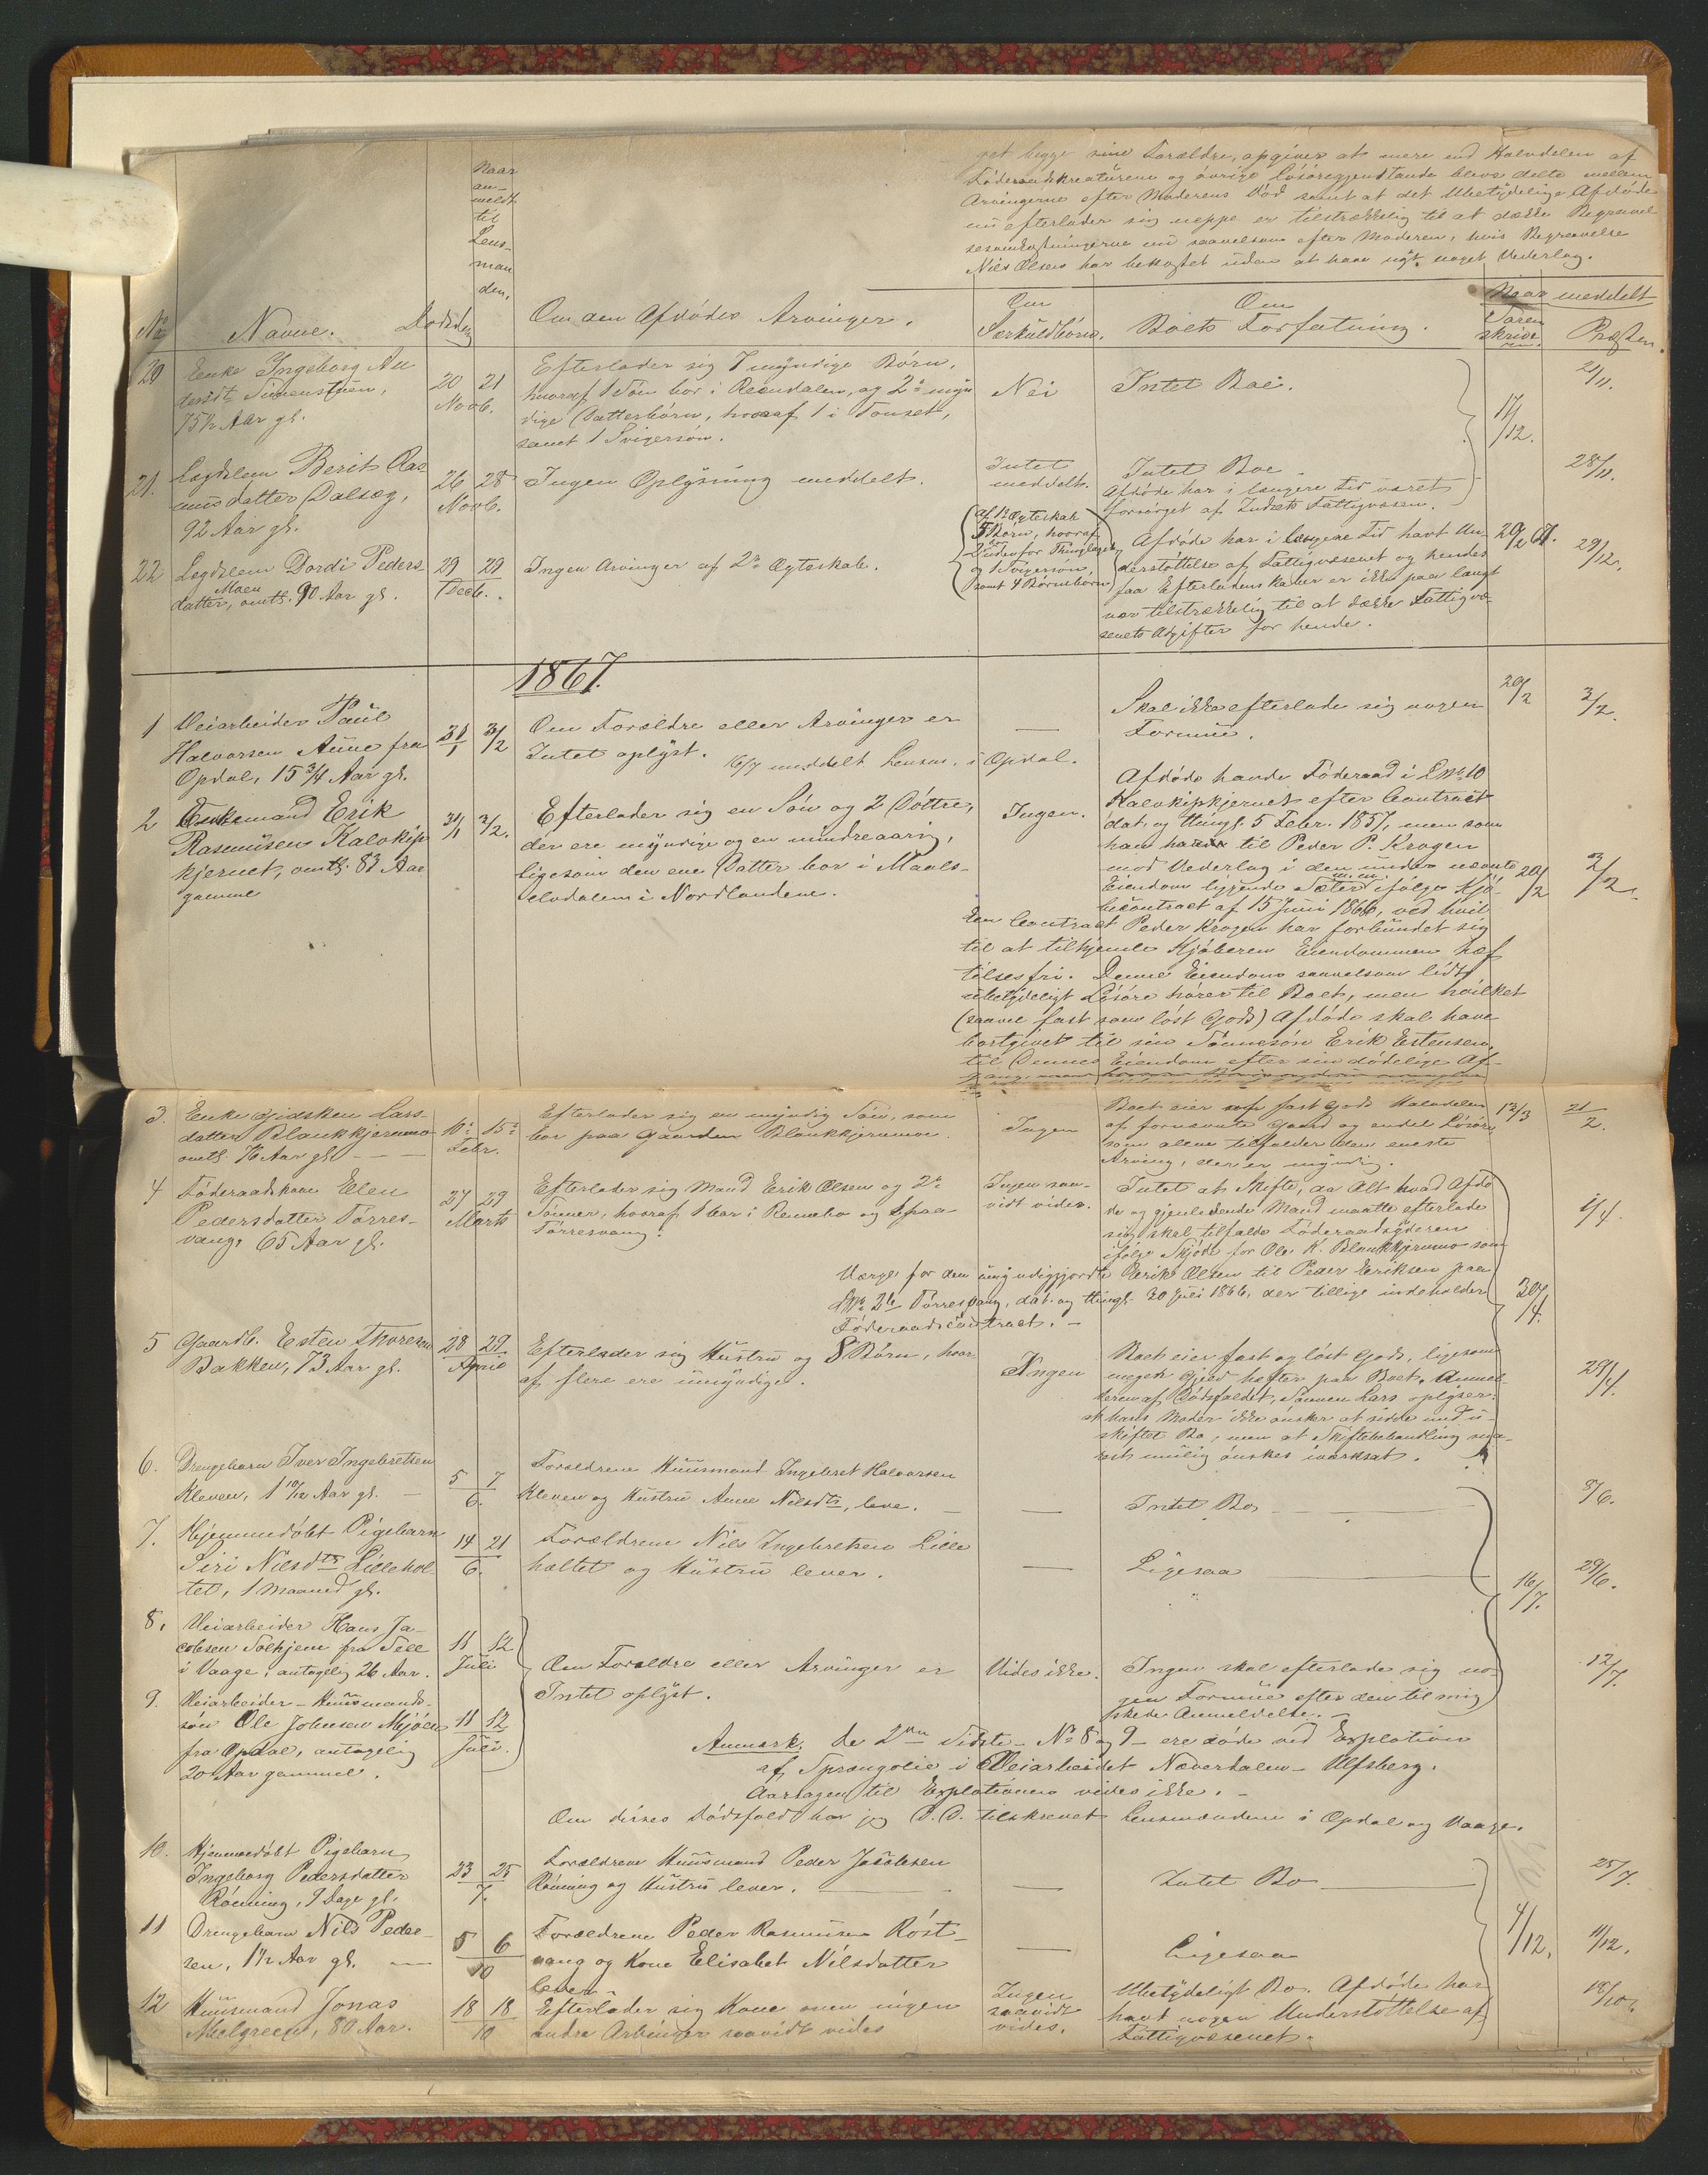 get begge sine Forældre, opgiver at mere end Halvdelen af
Föderaadskreaturene og øvrige Lösöregjenstande bleve delte mellem
Arvingerne efter Moderens Död samt at det Ubetydelige Afdöde
nu efterlader sig neppe er tilstrækkelig til at dække Begravel
sesomkostningerne saavelsom efter Moderen, hvis Begravelse
Nils Olsen har bekostet uden at have nydt noget Vederlag.
No
Navne.
Dödsdag
Naar
an-
meldt
til
Lens-
man
den,
Om den Afdödes Arvinger.
Om
Særkuldbörn.
Om
Boets Forfatning.
Naar meddelt
Soren
skriver
Præsten.
20
Enke Ingeborg An
dersdt
75½ Aar gl.
20 21
Novb.
Efterlader sig 7 myndige Börn,
hvoraf 1 Sön bor i Reendalen, og 2de myn
dige Datterbörn, hvoraf 1 i Tønset,
samt 1 Svigersön.
Nei
Intet Boe.
17/12.
21/11.
21.
Lægdslem Berit Ras-
musdatter Dalsæg,
92 Aar gl.
26 28
Novb.
Ingen Oplysning meddelt.
Intet
meddelt.
Intet Boe
Afdöde har i længere Tid været
forsörget af Indsets Fattigvæsen.
28/11.
22
Lægdslem Dordi Peders-
datter, Moen omtl. 90 Aar gl.
29 29
Decb.
Ingen Arvinger af 2det Ægteskab.
af 1ste Ægteskab
5 Börn, hvoraf
2 udenfor Thinglaget,
og 1 Svigersön,
samt 4 Börnebörn
Afdöde har i længere Tid havt Un-
derstöttelse af Fattigvæsenet og hendes
faa Efterladenskaber er ikke paa langt
nær tilstrækkelig til at dække Fattigvæ-
senets Udgifter for hende.
20/2 67.
29/12.
1867.
1
Veiarbeider Paul
Halvorsen Aune fra
Opdal, 15 3/4 Aar gl.
31/1 3/2
Om Forældre eller Arvinger er
Intet oplyst. 16/7 meddelt Lensm. i Opdal.
Skal ikke efterlade sig nogen
Formue.
20/2
3/2.
2
Enkemand Erik
Rasmusen Kalvkip
kjernet, omtl. 83 Aar
gammel
31/1 3/2.
Efterlader sig en Sön og 2 Döttre,
der ere myndige og en mindreaarig,
ligesom den ene Datter bor i Maals-
elvdalen i Nordlandene.
Ingen.
Afdöde havde Föderaad i Lno 10
Kalvkipkjernet efter Contract
dat. og thingl. 5 Febr. 1857, men som
han havde til Peder P. Krogen
mod Vederlag i den under nævnte
Eiendom liggende Sæter m.m. ifölge Kjö-
becontract af 15 Juni 1866, ved hvil
ken Contract Peder Krogen har forbundet sig
til at tilhjemle Kjöberen Eiendommen hef
telsesfri. Denne Eiendom saavelsom lidt
ubetydeligt Lösöre hörer til Boet, men hvilket
(saavel fast som löst Gods) Afdöde skal have
bortgivet til sin Sönnesön Erik Estensen,
til Dennes Eiendom efter sin dödelige Af-
20/2
3/2.
3.
Enke Gidsken Lars-
datter Blankkjernmo
omtl. 76 Aar gl.
10de 15de
Febr.
Efterlader sig en myndig Sön, som
bor paa Gaarden Blankkjernmoe.
Ingen
Boet eier af fast Gods Halvdelen
af fornævnte Gaard og endel Lösöre
som alene tilfalder den eneste
Arving, der er myndig.
12/3
21/2.
4
Föderaadskone Elen
Pedersdatter Törres-
vang, 65 Aar gl.
27 29
Marts
Efterlader sig Mand Erik Olsen og 2de
Sönner, hvoraf 1 bor i Rennebo og 1 paa
Törresvang.
Ingen saa-
vidt vides.
Intet at Skifte, da Alt hvad Afdö
de og gjenlevende Mand maatte efterlade
sig skal tilfalde Föderaadsyderen
ifölge Skjöde for Ole K. Blankkjernmo som
Værge for den umyndiggjorte Erik Olsen til Peder Eriksen paa
Lno 26 Törresvang, dat. og thingl. 30 Juli 1866, der tillige indeholder
Föderaadscontract.
30/4.
1/4.
5
Gaardb. Esten Thoresen
Bakken, 73 Aar gl.
28 29
April
Efterlader sig Hustru og 8 Börn, hvor
af flere ere umyndige.
Ingen
Boet eier fast og löst Gods, ligesom
megen Gjeld hefter paa Boet. Anmel-
deren af Dödsfaldet, Sönnen Lars oplyser
at hans Moder ikke önsker at sidde med u-
skiftet Bo, men at Skiftebehandling sna-
rest mulig önskes iværksat.
29/4.
6.
Drengebarn Iver Ingebretsen
Kleven, 1 10/12 Aar gl.
5 7
6.
Forældrene Huusmand Ingebret Halvorsen
Kleven og Hustru Anne Nilsdtr, leve.
Intet Bo
8/6.
7.
Hjemmedöbt Pigebarn
Siri Nilsdtr Lillehol-
tet, 1 Maaned gl.
14 21
6.
Forældrene Nils Ingebretsen Lille
holtet og Hustru lever.
Ligesaa
16/7.
29/6.
8.
Veiarbeider Hans Ja-
cobsen Solhjem fra Sell
i Vaage, antagelig 26 Aar.
11 12
Juli
Om Forældre eller Arvinger er
Intet oplyst.
Vides ikke.
Ingen skal efterlade sig no-
gen Formue efter den til mig
skede Anmeldelse.
12/7.
9.
Veiarbeider - Huusmands-
sön Ole Johnsen Mjöen
fra Opdal, antagelig
20 Aar gammel.
11 12
Juli.
Anmærk. De 2de Sidste - No 8 og 9 - ere döde ved Explotion
af Sprængolie i Veiarbeidet Næverdalen - Ulfsberg.
Aarsagen til Explotionen vides ikke.
Om disses Dödsfald har jeg D. D. tilskrevet Lensmændene i Opdal og Vaage.
10.
Hjemmedöbt Pigebarn
Ingeborg Pedersdatter
Rönning, 9 Dage gl.
23 25
7.
Forældrene Huusmand Peder Jacobsen
Rönning og Hustru lever.
Intet Bo
25/7.
11
Drengebarn Nils Peder-
sen, 1½ Aar gl.
5 6
10
Forældrene Peder Rasmusen Röst-
vang og Kone Elisabet Nilsdatter
lever.
Ligesaa
4/12.
11/12.
12
Huusmand Jonas
Melgreen, 80 Aar.
18 18
10
Efterlader sig Kone men ingen
andre Arvinger saavidt vides
Ingen
saavidt
vides.
Ubetydeligt Bo. Afdöde har
havt nogen Understöttelse af
Fattigvæsenet.
18/10.